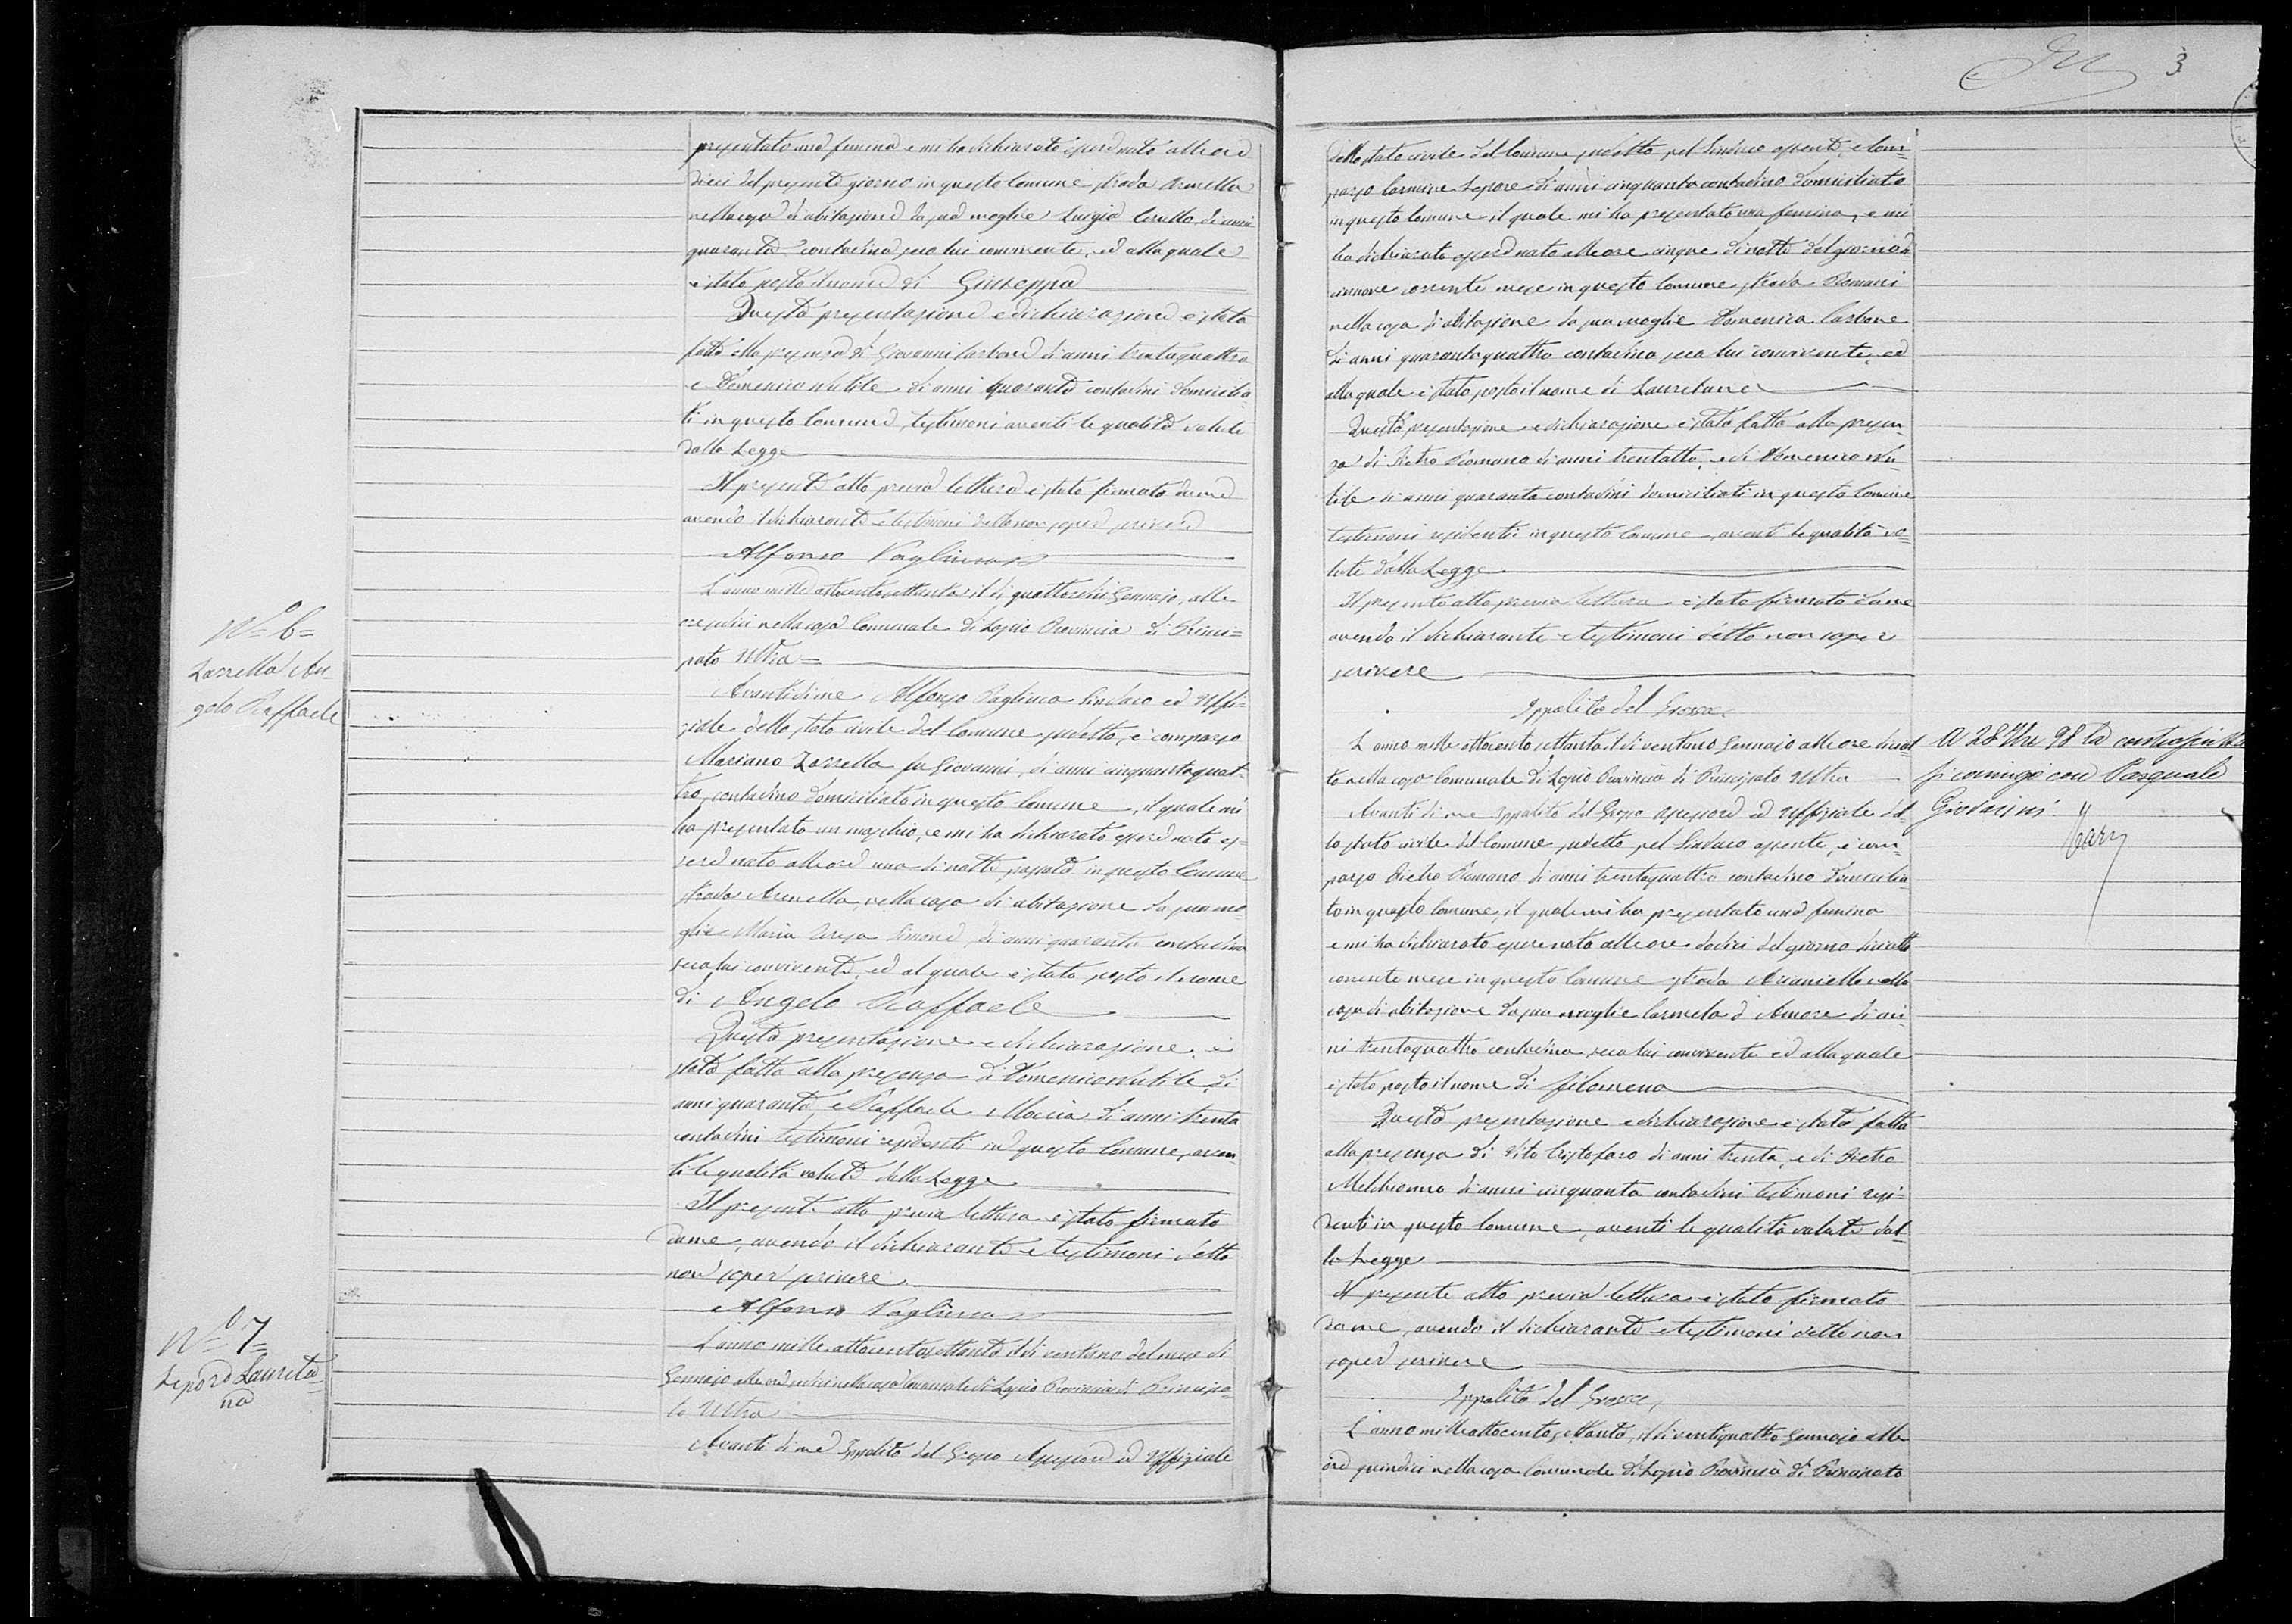 presentato una femina e mi ha dichiarato essere nata alle ore
dieci del presente giorno in questo Comune strada Arenella
nella casa di abitazione da sua moglie Luigia Cerullo, di anni
quaranta contadina seco lui convivente, ed alla quale
è stato posto il nome di Giuseppa
Questa presentazione e dichiarazione è stata
fatta alla presenza di Giovanni Carbone di anni trentaquattro
e Domenico Nutile di anni quaranta contadini domicilia-
ti in questo Comune, testimoni aventi le qualità volute
dalla Legge
Il presente atto previa lettura è stato firmato da me
avendo il dichiarante e testimoni detto non sapere scrivere
Alfonso Pagliuca
N.º 6=
Zarrella An-
gelo Raffaele
L'anno mille ottocento settanta il di quattordici Gennajo, alle
ore sedici nella casa Comunale di Lapio Provincia di Princi=
pato Ultra=
Avanti di me Alfonso Pagliuca Sindaco ed Uffi-
ziale dello stato civile del Comune sudetto, è comparso
Mariano Zarrella fu Giovanni, di anni cinquantaquat-
tro, contadino domiciliato in questo Comune, il quale mi
ha presentato un maschio, e mi ha dichiarato essere nato es-
sere nato alle ore una di notte passata in questo Comune
strada Arenella, nella casa di abitazione da sua mo-
glie Maria Teresa Simone, di anni quaranta contadina
seco lui convivente, ed al quale è stato posto il nome
di Angelo Raffaele
Questa presentazione e dichiarazione, è
stata fatta alla presenza di Domenico Nutile di
anni quaranta, e Raffaele Maccia di anni trenta
contadini testimoni residenti in questo Comune, aven-
ti le qualità volute dalla Legge
Il presente atto previa lettura è stato firmato
da me, avendo il dichiarante e testimoni detto
non saper scrivere
Alfonso Pagliuca
N.º 7=
Lepore Laureta=
na
L'anno mille ottocento settanta il di ventuno del mese di
Gennajo alle ore sedici nella casa Comunale di Lapio Provincia di Principa-
to Ultra
Avanti di me Ippolito del Grosso Assessore ed Uffiziale
3
dello stato civile del Comune sudetto, pel Sindaco assente, è com-
parso Carmine Lepore di anni cinquanta contadino domiciliato
in questo Comune il quale mi ha presentato una femina, e mi
ha dichiarato essere nata alle ore cinque di notte del giorno di
cinnove corrente mese in questo Comune strada Romani
nella casa di abitazione da sua moglie Domenica Carbone
di anni quarantaquattro contadina seco lui convivente, ed
alla quale è stato posto il nome di Lauretana
Questa presentazione e dichiarazione è stata fatta alla presen-
za di Pietro Romano di anni trentotto, e di Domenico Nu-
tile di anni quaranta contadini domiciliati in questo Comune
testimoni residenti in questo Comune, aventi le qualità vo-
lute dalla Legge
Il presente atto previa lettura è stato firmato da me
avendo il dichiarante e testimoni detto non saper
scrivere
Ippolito del Grosso
L'anno mille ottocento settanta il di ventuno Gennajo alle ore diciot-
to nella casa Comunale di Lapio Provincia di Principato Ultra
Avanti di me Ippolito del Grosso Assessore ed Uffiziale del-
lo stato civile del Comune sudetto, pel Sindaco assente, è com-
parso Pietro Romano di anni trentaquattro contadino domicilia-
to in questo Comune, il quale mi ha presentato una femina
e mi ha dichiarato essere nata alle ore dodici del giorno diciotto
corrente mese in questo Comune strada Arianiello nella
casa di abitazione da sua moglie Carmela d'Amore di an-
ni trentaquattro contadina seco lui convivente ed alla quale
è stato posto il nome di Filomena
Questa presentazione e dichiarazione è stata fatta
alla presenza di Vito Cristofaro di anni trenta, e di Pietro
Melchionna di anni cinquanta contadini testimoni resi-
denti in questo Comune, aventi le qualità volute dal-
la Legge
Il presente atto previa lettura è stato firmato
da me, avendo il dichiarante e testimoni detto non
sapere scrivere
Ippolito del Grosso
L'anno mille ottocento settanta, il di ventiquattro Gennajo alle
ore quindici nella casa Comunale di Lapio Provincia di Principato
A 28 98 la
si coniugò con Pasquale